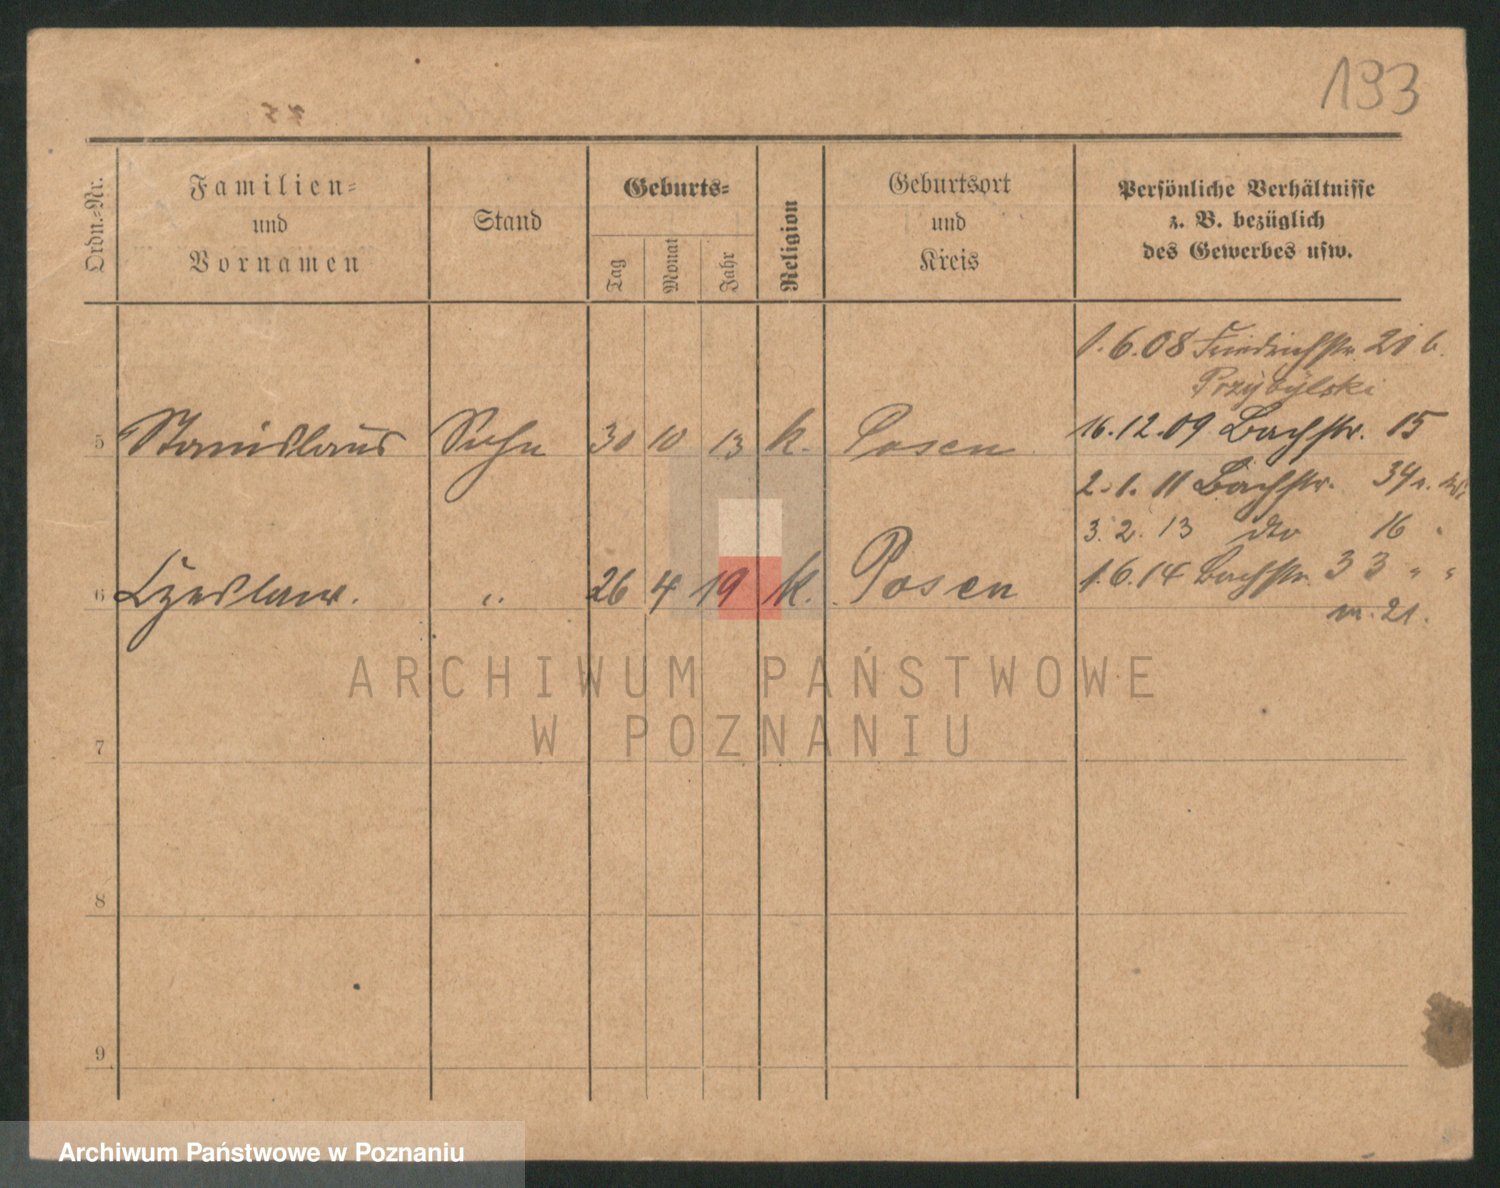 193
Ordn.=Nr.
Familien=
und
Vornamen
Stand
Geburts=
Tag
Monat
Jahr
Religion
Geburtsort
und
Kreis
Persönliche Verhältnisse
z. B. bezüglich
des Gewerbes usw.
1.6.08 Friedrichstr. 21 b.
Przybylski
5 Stanislaus Sohn 30 10 13 k. Posen 16.12.09 Bachstr. 15
2.1.11 Bachstr. 34
3.2.13 dto 16
6 Czeslaw. ". 26 4 19 k. Posen 1.6.14 Bachstr. 33 " "
21.
ARCHIWUM PAŃSTWOWE
W POZNANIU
7
8
9
Archiwum Państwowe w Poznaniu